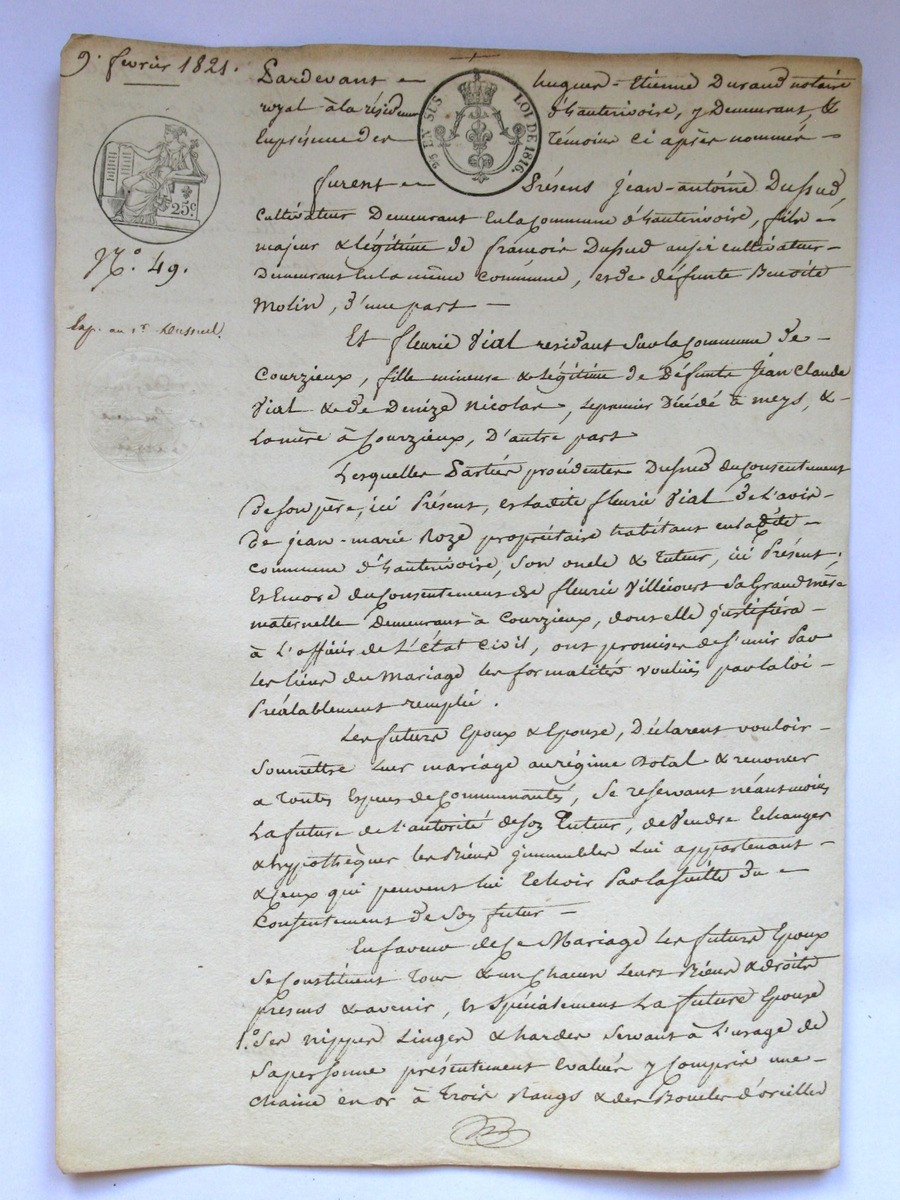 9. fevrier 1821.
Pardevant hugues-Etienne Durand notaire
royal à la résidence d'hauterivoire, y Demeurant, &
En présence des Témoins ci après nommés
25 EN SUS
LOI DE 1816.
25c
furent Présens Jean-antoine Dussud,
Cultivateur Demeurant En la Commune d'hauterivoire, fils
majeur & légitime de françois Dussud aussi cultivateur
Demeurant En la même commune, et de défunte Benoite
Molin, d'une part
N.º 49.
Exp. au Sr. Dussud.
Et fleurie Vial residant Sur la Commune de
Courzieux, fille mineure & légitime de Défunts Jean Claude
Vial & de Denize Nicolas, le premier Décédé à meys, &
La mère à Courzieux, D'autre part
Lesquelles Parties procédentes Dussud du Consentement
De son père, ici Présent, et la dite fleurie Vial De L'avis
De jean-marie Roze propriétaire habitant en la dite
commune d'hauterivoire, Son oncle & Tuteur, ici Présent,
Et Encore du Consentement de fleurie Villécourt Sa Grand mère
maternelle Demeurant à Courzieux, dont elle justifiéra
à L'officier de L'état Civil, ont promis de s'unir Par
Les liens du Mariage les formalités voulues par la loi
Préalablement remplie.
Les futurs Epoux & Epouse, Déclarent vouloir
Soumettre Leur mariage au régime Dotal & renoncer
a Toutes Espèces de Communautés, Se reservant néantmoins
La future de L'autorité de Son Tuteur, de Vendre Echanger
& hypothèquer les Biens immeubles Lui appartenant
& Ceux qui peuvent lui Echoir Par la suitte du
Consentement de Son futur
En faveur de Ce Mariage les futurs Epoux
Se Constituent Tous & un Chacun Leurs Biens & droits
presens & avenir, Et Spécialement La future Epouse
1.º Ses nippes Linges & hardes Servant à L'usage de
Sa personne présentement Evalués y Compris une
Chaine en or à Trois Rangs & des Boucles d'oreilles